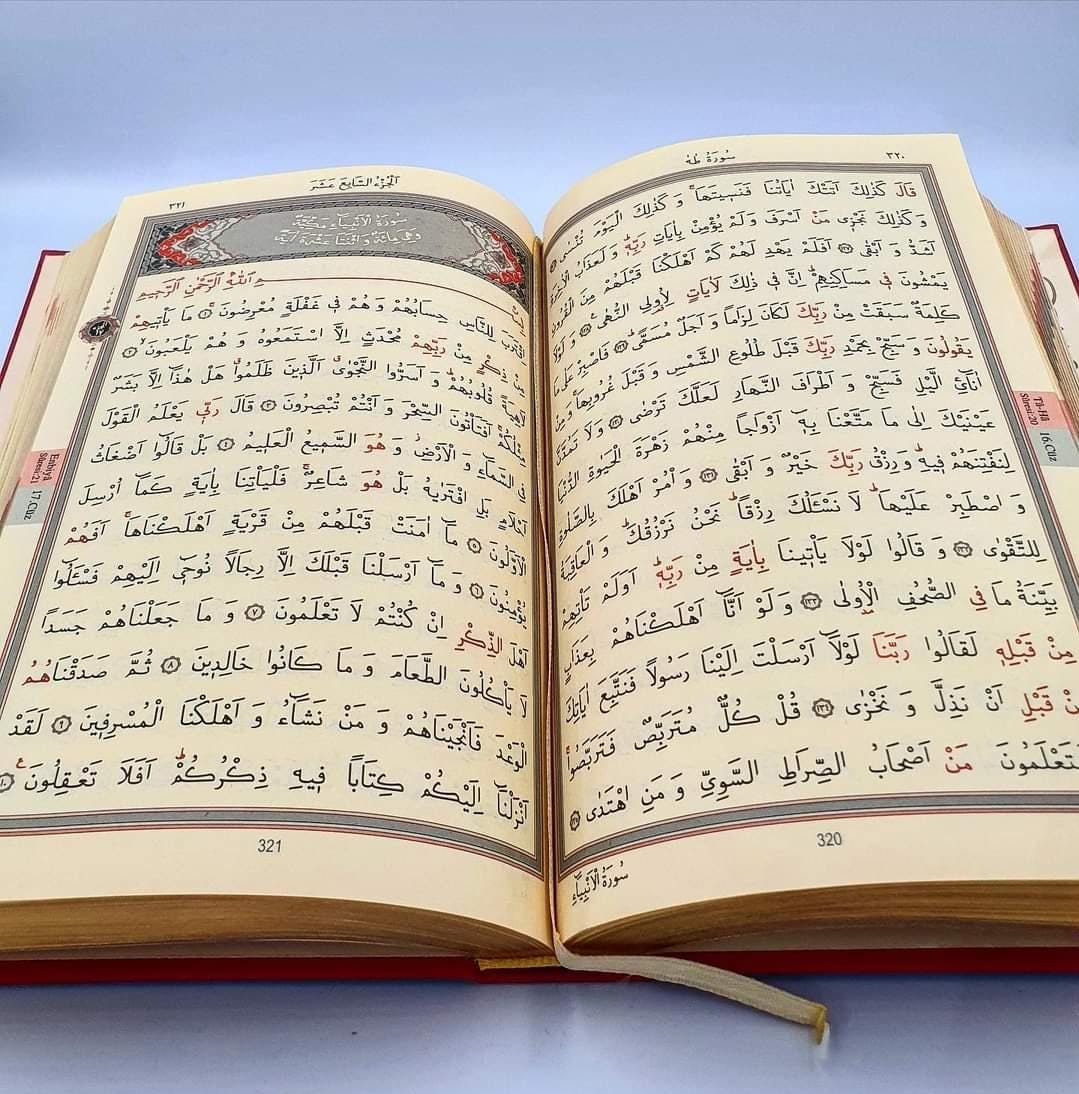 سُورَةُ طٰهٰ
٣٢٠
قَالَ كَذٰلِكَ اَتَتْكَ اٰيَاتُنَا فَنَسٖيتَهَاۚ وَكَذٰلِكَ الْيَوْمَ تُنْسٰى ﴿١٢٦﴾
وَكَذٰلِكَ نَجْزٖى مَنْ اَسْرَفَ وَلَمْ يُؤْمِنْ بِاٰيَاتِ رَبِّهٖؕ وَلَعَذَابُ الْاٰخِرَةِ
اَشَدُّ وَاَبْقٰى ﴿١٢٧﴾ اَفَلَمْ يَهْدِ لَهُمْ كَمْ اَهْلَكْنَا قَبْلَهُمْ مِنَ الْقُرُونِ
يَمْشُونَ فٖى مَسَاكِنِهِمْؕ اِنَّ فٖى ذٰلِكَ لَاٰيَاتٍ لِاُولِى النُّهٰىࣖ ﴿١٢٨﴾ وَلَوْلَا
كَلِمَةٌ سَبَقَتْ مِنْ رَبِّكَ لَكَانَ لِزَاماً وَاَجَلٌ مُسَمًّىؕ ﴿١٢٩﴾ فَاصْبِرْ عَلٰى مَا
يَقُولُونَ وَسَبِّحْ بِحَمْدِ رَبِّكَ قَبْلَ طُلُوعِ الشَّمْسِ وَقَبْلَ غُرُوبِهَاۚ وَمِنْ
اٰنَٓائِ الَّيْلِ فَسَبِّحْ وَاَطْرَافَ النَّهَارِ لَعَلَّكَ تَرْضٰى ﴿١٣٠﴾ وَلَا تَمُدَّنَّ
عَيْنَيْكَ اِلٰى مَا مَتَّعْنَا بِهٖٓ اَزْوَاجاً مِنْهُمْ زَهْرَةَ الْحَيٰوةِ الدُّنْيَا
لِنَفْتِنَهُمْ فٖيهِؕ وَرِزْقُ رَبِّكَ خَيْرٌ وَاَبْقٰى ﴿١٣١﴾ وَأْمُرْ اَهْلَكَ بِالصَّلٰوةِ
وَاصْطَبِرْ عَلَيْهَاؕ لَا نَسْـَٔلُكَ رِزْقاًؕ نَحْنُ نَرْزُقُكَؕ وَالْعَاقِبَةُ
لِلتَّقْوٰى ﴿١٣٢﴾ وَقَالُوا لَوْلَا يَأْتٖينَا بِاٰيَةٍ مِنْ رَبِّهٖؕ اَوَلَمْ تَأْتِهِمْ
بَيِّنَةُ مَا فِى الصُّحُفِ الْاُولٰى ﴿١٣٣﴾ وَلَوْ اَنَّٓا اَهْلَكْنَاهُمْ بِعَذَابٍ
مِنْ قَبْلِهٖ لَقَالُوا رَبَّنَا لَوْلَٓا اَرْسَلْتَ اِلَيْنَا رَسُولاً فَنَتَّبِعَ اٰيَاتِكَ
مِنْ قَبْلِ اَنْ نَذِلَّ وَنَخْزٰى ﴿١٣٤﴾ قُلْ كُلٌّ مُتَرَبِّصٌ فَتَرَبَّصُواۚ
فَسَتَعْلَمُونَ مَنْ اَصْحَابُ الصِّرَاطِ السَّوِىِّ وَمَنِ اهْتَدٰى ﴿١٣٥﴾
320
سُورَةُ الْاَنْبِيَٓاءِ
Tâ-Hâ
Sûresi:20
16.Cüz
اَلْجُزْءُ السَّابِعَ عَشَرَ
٣٢١
سُورَةُ الْاَنْبِيَٓاءِ مَكِّيَّةٌ
وَهِىَ مِائَةٌ وَاثْنَتَا عَشْرَةَ اٰيَةً
بِسْمِ اللّٰهِ الرَّحْمٰنِ الرَّحٖيمِ
اِقْتَرَبَ لِلنَّاسِ حِسَابُهُمْ وَهُمْ فٖى غَفْلَةٍ مُعْرِضُونَۚ ﴿١﴾ مَا يَأْتٖيهِمْ
مِنْ ذِكْرٍ مِنْ رَبِّهِمْ مُحْدَثٍ اِلَّا اسْتَمَعُوهُ وَهُمْ يَلْعَبُونَۙ ﴿٢﴾
لَاهِيَةً قُلُوبُهُمْؕ وَاَسَرُّوا النَّجْوَىۗ اَلَّذٖينَ ظَلَمُواۗ هَلْ هٰذَٓا اِلَّا بَشَرٌ
مِثْلُكُمْۚ اَفَتَأْتُونَ السِّحْرَ وَاَنْتُمْ تُبْصِرُونَ ﴿٣﴾ قَالَ رَبّٖى يَعْلَمُ الْقَوْلَ
فِى السَّمَٓاءِ وَالْاَرْضِؗ وَهُوَ السَّمٖيعُ الْعَلٖيمُ ﴿٤﴾ بَلْ قَالُٓوا اَضْغَاثُ
اَحْلَامٍ بَلِ افْتَرٰيهُ بَلْ هُوَ شَاعِرٌۚ فَلْيَأْتِنَا بِاٰيَةٍ كَمَٓا اُرْسِلَ
الْاَوَّلُونَ ﴿٥﴾ مَٓا اٰمَنَتْ قَبْلَهُمْ مِنْ قَرْيَةٍ اَهْلَكْنَاهَاۚ اَفَهُمْ
يُؤْمِنُونَ ﴿٦﴾ وَمَٓا اَرْسَلْنَا قَبْلَكَ اِلَّا رِجَالاً نُوحٖٓى اِلَيْهِمْ فَسْـَٔلُٓوا
اَهْلَ الذِّكْرِ اِنْ كُنْتُمْ لَا تَعْلَمُونَ ﴿٧﴾ وَمَا جَعَلْنَاهُمْ جَسَداً
لَا يَأْكُلُونَ الطَّعَامَ وَمَا كَانُوا خَالِدٖينَ ﴿٨﴾ ثُمَّ صَدَقْنَاهُمُ
الْوَعْدَ فَاَنْجَيْنَاهُمْ وَمَنْ نَشَٓاءُ وَاَهْلَكْنَا الْمُسْرِفٖينَ ﴿٩﴾ لَقَدْ
اَنْزَلْنَٓا اِلَيْكُمْ كِتَاباً فٖيهِ ذِكْرُكُمْؕ اَفَلَا تَعْقِلُونَࣖ ﴿١٠﴾
321
Enbiyâ
Sûresi:21
17.Cüz